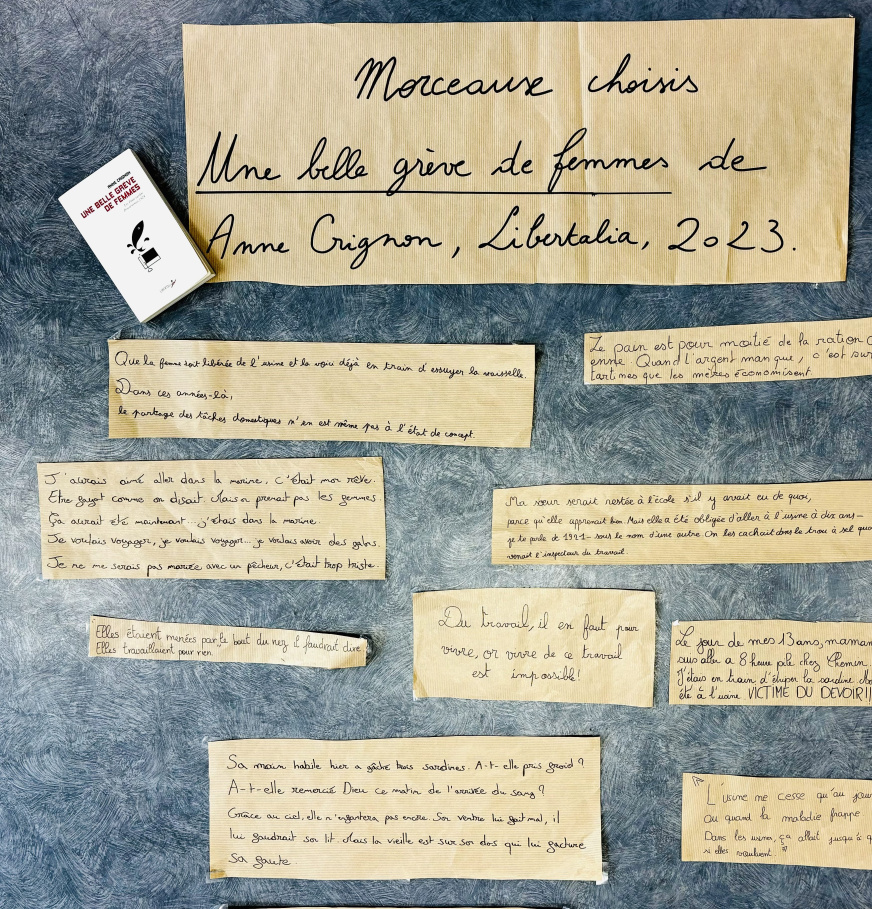 Morceaux choisis
Une belle grève de femmes de
Anne Crignon, Libertalia, 2023.
ANNE CRIGNON
UNE BELLE GRÈVE
DE FEMMES
Que la femme soit libérée de l'usine et la voici déjà en train d'essuyer la vaisselle.
Dans ces années-là,
le partage des tâches domestiques n'en est même pas à l'état de concept.
Le pain est pour moitié de la ration
enne. Quand l'argent manque, c'est sur
tartines que les mères économisent.
J'aurais aimé aller dans la marine, c'était mon rêve.
Etre fayot comme on disait. Mais on prenait pas les femmes.
Ça aurait été maintenant... j'étais dans la marine.
Je voulais voyager, je voulais voyager... je voulais avoir des galons.
Je ne me serais pas mariée avec un pêcheur, c'était trop triste.
Ma sœur serait restée à l'école s'il y avait eu de quoi,
parce qu'elle apprenait bien. Mais elle a été obligée d'aller à l'usine à dix ans -
je te parle de 1921 - sous le nom d'une autre. On les cachait dans le trou à sel qua
venait l'inspecteur du travail.
Elles étaient menées par le bout du nez, il faudrait dire
Elles travaillaient pour rien."
Du travail, il en faut pour
vivre, or vivre de ce travail
est impossible!
Le jour de mes 13 ans, maman
suis aller a 8 heure pile chez Chemin
J'étais en train d'étriper la sardine.
été à l'usine. VICTIME DU DEVOIR!!
Sa main habile hier a gâché trois sardines. A-t-elle pris froid?
A-t-elle remercié Dieu ce matin de l'arrivée du sang?
Grâce au ciel, elle n'enfantera pas encore. Son ventre lui fait mal, il
lui faudrait son lit. Mais la vieille est sur son dos qui lui facture
sa faute.
L'usine ne cesse qu'au jour
ou quand la maladie frappe
Dans les usines, ça allait jusqu'à
si elles voulaient."